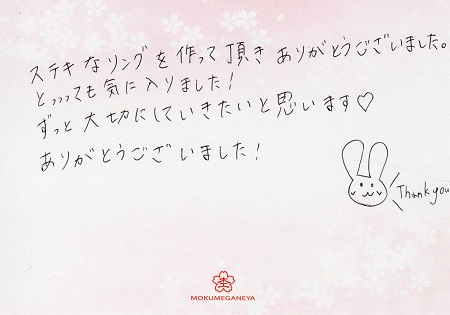 ステキなリングを作って頂きありがとうございました。
とっっっても気に入りました!
ずっと大切にしていきたいと思います♡
ありがとうございました!
Thank you
MOKUMEGANEYA